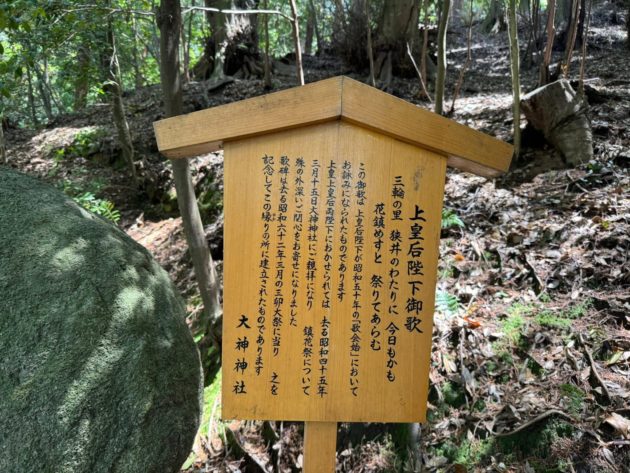 上皇后陛下御歌
三輪の里 狭井のわたりに 今日もかも
花鎮めすと 祭りてあらむ
この御歌は 上皇后陛下が昭和五十年の「歌会始」において
お詠みになられたものであります
上皇上皇后両陛下におかせられては 去る昭和四十五年
三月十五日大神神社にご親拝になり 鎮花祭について
殊の外深いご関心をお寄せになりました
歌碑は去る昭和六十二年三月の三卯大祭に当り 之を
記念してこの縁りの所に建立されたものであります
大神神社